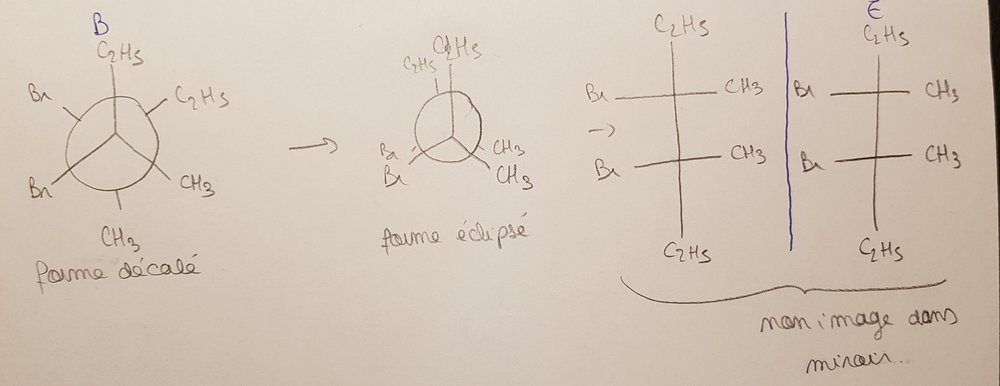 B
C2H5
Br
C2H5
Br
CH3
CH3
forme décalé
C2H5
C2H5
Br
Br
CH3
CH3
forme éclipsé
C2H5
Br
CH3
Br
CH3
C2H5
E
C2H5
Br
CH3
Br
CH3
C2H5
non image dans
miroir.